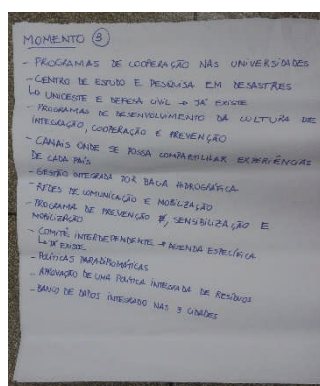 MOMENTO 3
- PROGRAMAS DE COOPERAÇÃO NAS UNIVERSIDADES
- CENTRO DE ESTUDO E PESQUISA EM DESASTRES
↳ UNIOESTE E DEFESA CIVIL → JÁ EXISTE
- PROGRAMAS DE DESENVOLVIMENTO DA CULTURA DE
INTEGRAÇÃO, COOPERAÇÃO E PREVENÇÃO
- CANAIS ONDE SE POSSA COMPARTILHAR EXPERIÊNCIAS
DE CADA PAÍS
- GESTÃO INTEGRADA POR BACIA HIDROGRÁFICA
- REDES DE COMUNICAÇÃO E MOBILIZAÇÃO
- PROGRAMA DE PREVENÇÃO, SENSIBILIZAÇÃO E
MOBILIZAÇÃO
- COMITÊ INTERDEPENDENTE → AGENDA ESPECÍFICA
↳ JÁ EXISTE
- POLÍTICAS PARADIPLOMÁTICAS
- APROVAÇÃO DE UMA POLÍTICA INTEGRADA DE RESÍDUOS
- BANCO DE DADOS INTEGRADO NAS 3 CIDADES